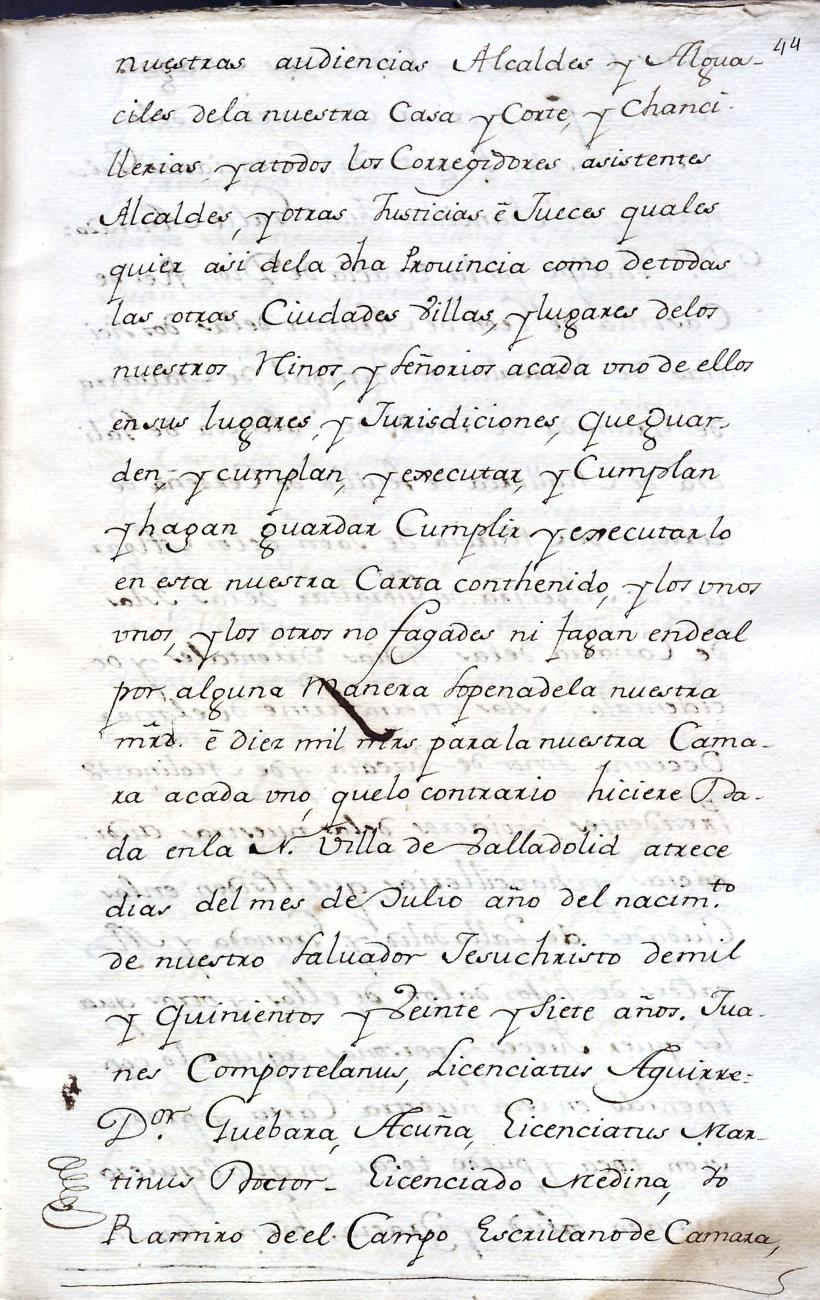 44
nuestras audiencias Alcaldes y Algua-
ciles dela nuestra Casa y Corte, y Chanci-
llerias, y atodos los Corregidores asistentes
Alcaldes, y otras Justicias ê Jueces quales
quier asi dela dha Prouincia como detodas
las otras Ciudades Villas, y lugares delos
nuestros Rinos, y señorios acada vno de ellos
ensus lugares, y Jurisdiciones, que guar-
den, y cumplan, y executar, y Cumplan
y hagan guardar Cumplir y executar lo
en esta nuestra Carta conthenido, y los vnos
vnos, y los otros no fagades ni fagan endeal
por alguna Manera sopenadela nuestra
mrd. ê diez mil mrs para la nuestra Cama-
ra acada vno, quelo contrario hiciere Da-
da enla N. Villa de Valladolid atrece
dias del mes de Julio año del nacim.to
de nuestro Saluador Jesuchristo demil
y quinientos y Veinte y siete años. Jua-
nes Compostelanus, Licenciatus Aguirre-
D.or Guebara, Acuña, Licenciatus Mar-
tinus Doctor- Licenciado Medina, Yo
Ramiro de el Campo Escriuano de Camara,